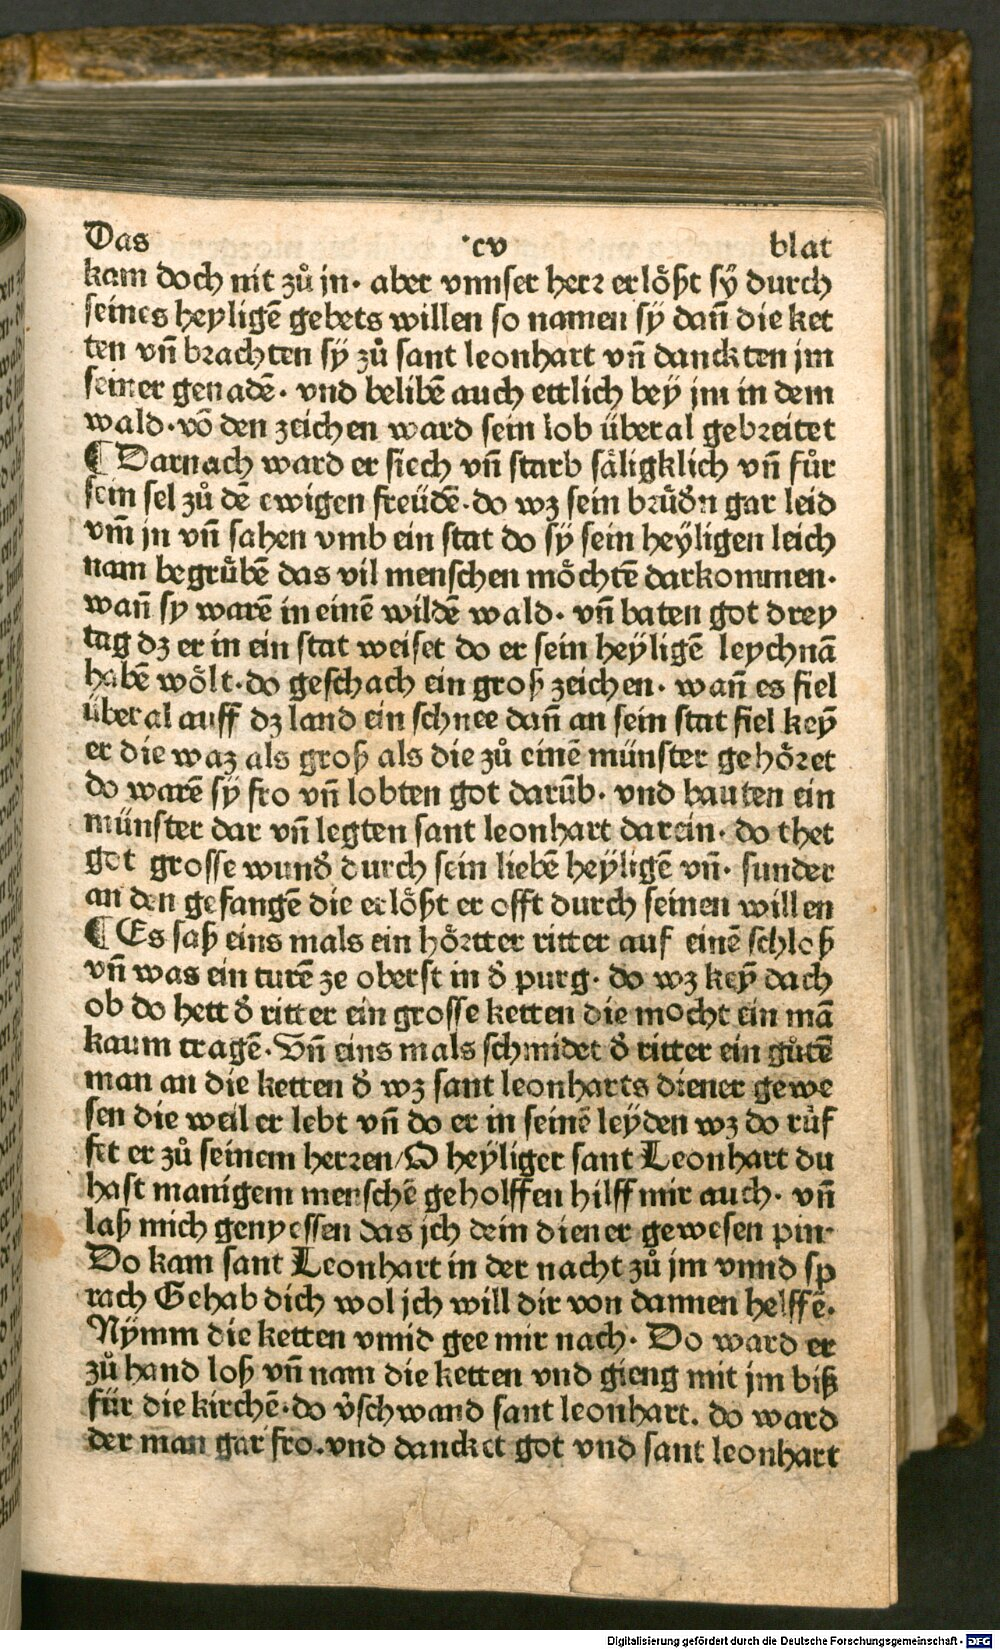 Das ·cv blat
kam doch nit zů jn· aber vnnser herꝛ erlößt sÿ durch
seines heyligē gebets willen so namen sÿ dañ die ket
ten vñ bꝛachten sÿ zů sant leonhart vñ danckten jm
seiner genadē· vnd belibē auch ettlich bey jm in dem
wald·vō den zeichen ward sein lob überal gebꝛeitet
¶ Darnach ward er siech vñ starb säligklich vñ fůr
sein sel zů dē ewigen freüdē·do wz sein bꝛüdn̄ gar leid
vm̄ jn vñ sahen vmb ein stat do sÿ sein heÿligen leich
nam begrůbē das vil menschen möchtē darkommen·
wañ sy warē in einē wildē wald· vñ baten got drey
tag dz er in ein stat weiset do er sein heÿligē leychnā
habē wölt·do geschach ein groß zeichen· wañ es fiel
überal auff dz land ein schnee dañ an sein stat fiel keÿ
er die waz als groß als die zů einē münster gehöꝛet
do warē sÿ fro vñ lobten got darūb· vnd bauten ein
münster dar vñ legten sant leonhart darein· do thet
got grosse wund̄ durch sein liebē heÿligē vñ· sunder
an den gefangē die erlößt er offt durch seinen willen
¶ Es saß eins mals ein höꝛtter ritter auf einē schloß
vñ was ein turē ze oberst in d̄ purg· do wz keÿ dach
ob do hett d̄ ritter ein grosse ketten die mocht ein mā
kaum tragē· Vñ eins mals schmidet d̄ ritter ein gůtē
man an die ketten d̄ wz sant leonharts diener gewe
sen die weil er lebt vñ do er in seinē leÿden wz do růf
fet er zů seinem herꝛen/O heÿliger sant Leonhart du
hast manigem menschē geholffen hilff mir auch· vñ
laß mich genyessen das jch dein diener gewesen pin·
Do kam sant Leonhart in der nacht zů jm vnnd sp
rach Gehab dich wol jch will dir von dannen helffē·
Nÿmm die ketten vnnd gee mir nach· Do ward er
zů hand loß vñ nam die ketten vnd gieng mit jm biß
für die kirchē·do v̄schwand sant leonhart. do ward
der man gar fro.vnd dancket got vnd sant leonhart
Digitalisierung gefördert durch die Deutsche Forschungsgemeinschaft - DFG